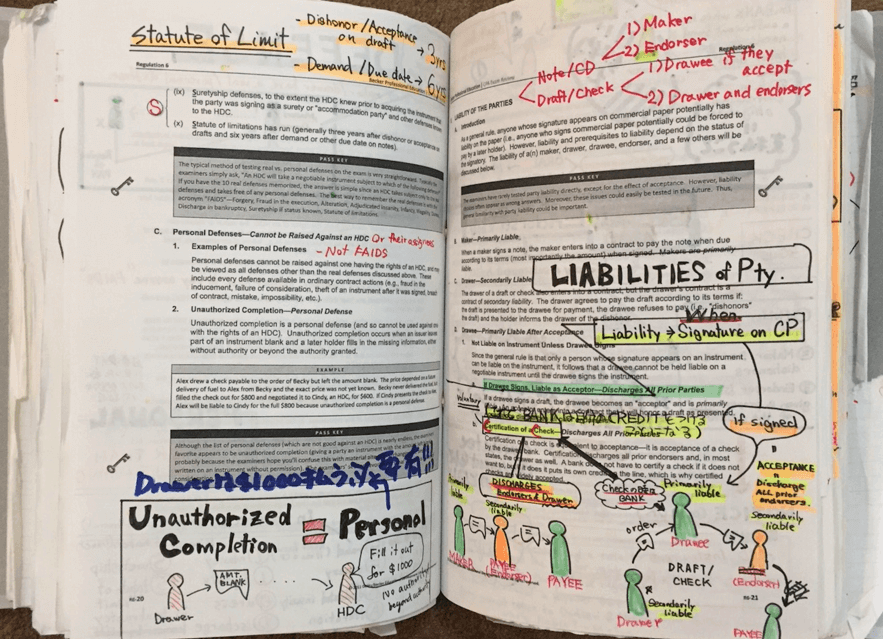 Statute of Limit
- Dishonor/Acceptance on draft → 3yrs
- Demand/Due date → 6yrs
Regulation 6
Becker Professional Education
(ix) Suretyship defenses, to the extent the HDC knew prior to acquiring the instrument that
the party was signing as a surety or "accommodation party" and other defenses known
to the HDC.
(x) Statute of limitations has run (generally three years after dishonor or acceptance on
drafts and six years after demand or other due date on notes).
PASS KEY
The typical method of testing real vs. personal defenses on the exam is very straightforward.
examiners simply ask, "An HDC will take a negotiable instrument subject to which of the following
If you have the 10 real defenses memorized, the answer is simple since an HDC takes subject only
and takes free of any personal defenses. The best way to remember the real defenses is
acronym "FAIDS"—Forgery, Fraud in the execution, Alteration, Adjudicated insanity, Infancy, Illegality,
Discharge in bankruptcy, Suretyship if status known, Statute of limitations.
C. Personal Defenses—Cannot be Raised Against an HDC Or their assignees
1. Examples of Personal Defenses - Not FAIDS
Personal defenses cannot be raised against one having the rights of an HDC, and
be viewed as all defenses other than the real defenses discussed above. These
include every defense available in ordinary contract actions (e.g., fraud in the
inducement, failure of consideration, theft of an instrument after it was signed, breach
of contract, mistake, impossibility, etc.).
2. Unauthorized Completion—Personal Defense
Unauthorized completion is a personal defense (and so cannot be used against
with the rights of an HDC). Unauthorized completion occurs when an issuer
part of an instrument blank and a later holder fills in the missing information, either
without authority or beyond the authority granted.
EXAMPLE
Alex drew a check payable to the order of Becky but left the amount blank. The price depended on a future
delivery of fuel to Alex from Becky and the exact price was not yet known. Becky never delivered the fuel,
filled the check out for $800 and negotiated it to Cindy, an HDC, for $600. If Cindy presents the check to
Alex will be liable to Cindy for the full $800 because unauthorized completion is a personal defense.
PASS KEY
Although the list of personal defenses (which are not good against an HDC) is nearly endless, the
favorite appears to be unauthorized completion (giving a party an instrument with the amount
probably because the examiners hope you'll confuse this with material
written on an instrument without permission).
Unauthorized Completion = Personal
AMT. BLANK
Fill it out for $1000
No authority/beyond authority
Drawer
HDC
R6-20
Note/CD
1) Maker
2) Endorser
Draft/Check
1) Drawee if they accept
2) Drawer and endorsers
LIABILITY OF THE PARTIES
Introduction
As a general rule, anyone whose signature appears on commercial paper potentially has
liability on the paper (i.e., anyone who signs commercial paper potentially could be forced to
pay by a later holder). However, liability and prerequisites to liability depend on the status of
the signatory. The liability of a(n) maker, drawer, drawee, endorser, and a few others will be
discussed below.
PASS KEY
The examiners have rarely tested party liability directly, except for the effect of acceptance. However, liability
Moreover, these issues could easily be tested in the future. Thus,
general familiarity with party liability could be important.
B. Maker—Primarily Liable
When a maker signs a note, the maker enters into a contract to pay the note when due
LIABILITIES of Pty.
C. Drawer—Secondarily Liable
contract of secondary liability. The drawer agrees to pay the draft according to its terms if:
the draft is presented to the drawee for payment, the drawee refuses to pay (i.e., "dishonors"
and the holder informs the drawer of the dishonor.
When
Liability → Signature on CP
D. Drawee—Primarily Liable After Acceptance
1. Not Liable on Instrument Unless Drawee Signs
Since the general rule is that only a person whose signature appears on an instrument
can be liable on the instrument, it follows that a drawee cannot be held liable on a
negotiable instrument until the drawee signs the instrument.
If Drawee Signs, Liable as Acceptor—Discharges All Prior Parties
If a drawee signs a draft, the drawee becomes an "acceptor" and is primarily
Certification of a Check—Discharges All Prior Parties
if signed
ACCEPTANCE
Discharge ALL prior endorsers.
DISCHARGES Endorsers & Drawer
BANK
Primarily liable
Secondarily liable
MAKER
PAYEE (Endorser)
PAYEE
Primarily liable
order
Drawee
DRAFT/CHECK
Secondarily liable
(Endorser)
Drawer
Secondarily liable
PAYEE
R6-21